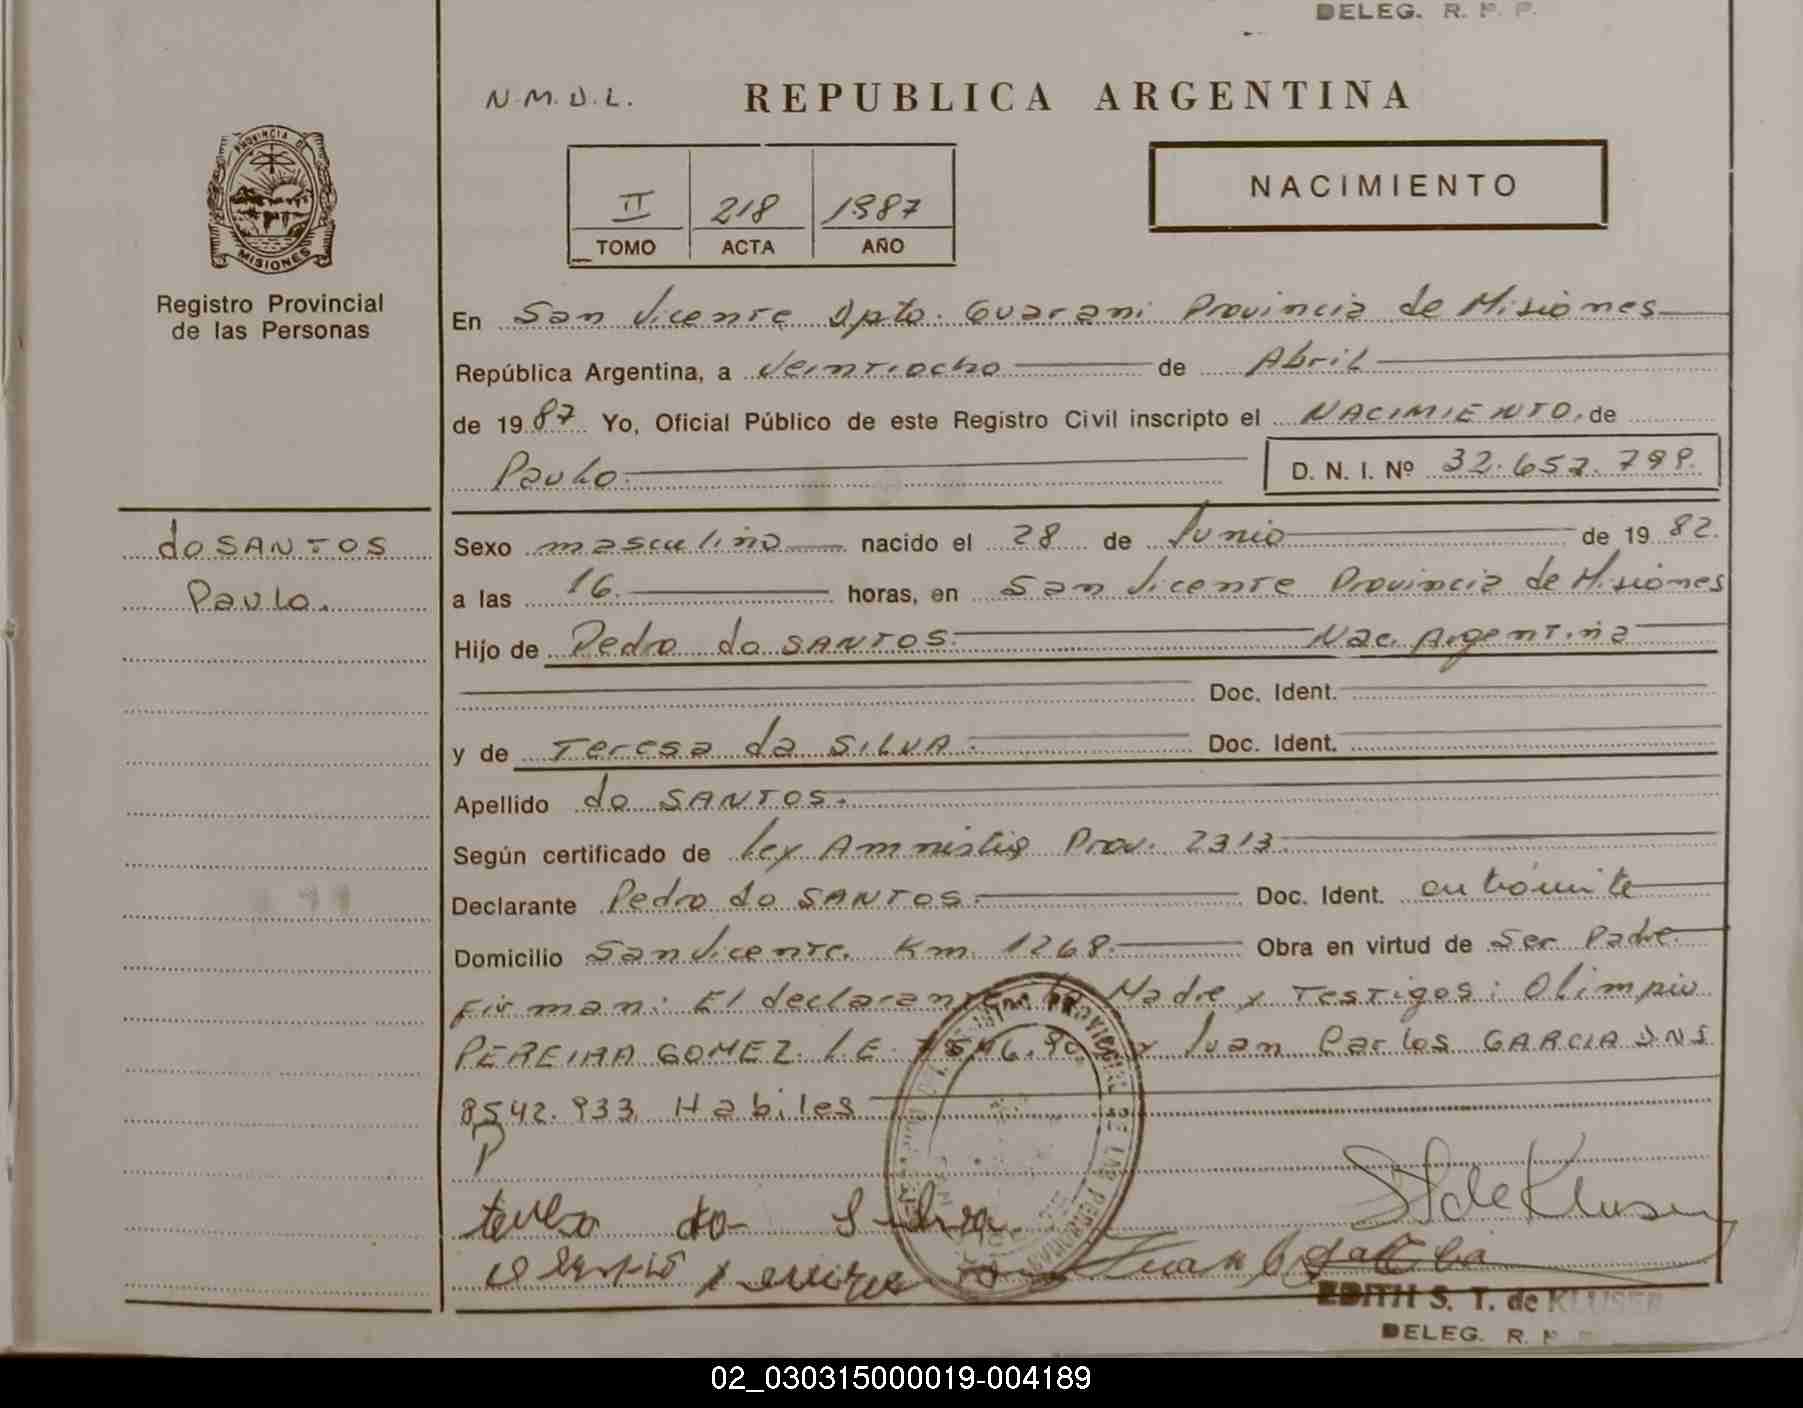 DELEG. R. P. P.
N.M.D.L.
REPUBLICA ARGENTINA
PROVINCIA DE
MISIONES
Registro Provincial
de las Personas
II 218 1987
TOMO ACTA AÑO
NACIMIENTO
En San Vicente Dpto. Guarani Provincia de Misiones
República Argentina, a Veintiocho de Abril
de 1987 Yo, Oficial Público de este Registro Civil inscripto el NACIMIENTO. de
Paulo D. N. I. Nº 32.652.799.
do SANTOS
Paulo.
Sexo masculino nacido el 28 de Junio de 1982.
a las 16. horas, en San Vicente Provincia de Misiones
Hijo de Pedro do SANTOS. Nac. Argentina
Doc. Ident.
y de Teresa da SILVA. Doc. Ident.
Apellido do SANTOS.
Según certificado de Ley Amnistia Prov. 2313
Declarante Pedro do SANTOS. Doc. Ident. en trámite
Domicilio San Vicente. Km. 1268. Obra en virtud de Ser Padre.
Firman: El declarante la Madre y Testigos: Olimpio
PEREIRA GOMEZ. L.E. y Juan Carlos GARCIA DNI
8542.933. Habiles
P
da Silva
St de Kluser
Juan C Garcia
EDITH S. T. de KLUSER
DELEG. R. P. P.
02_030315000019-004189